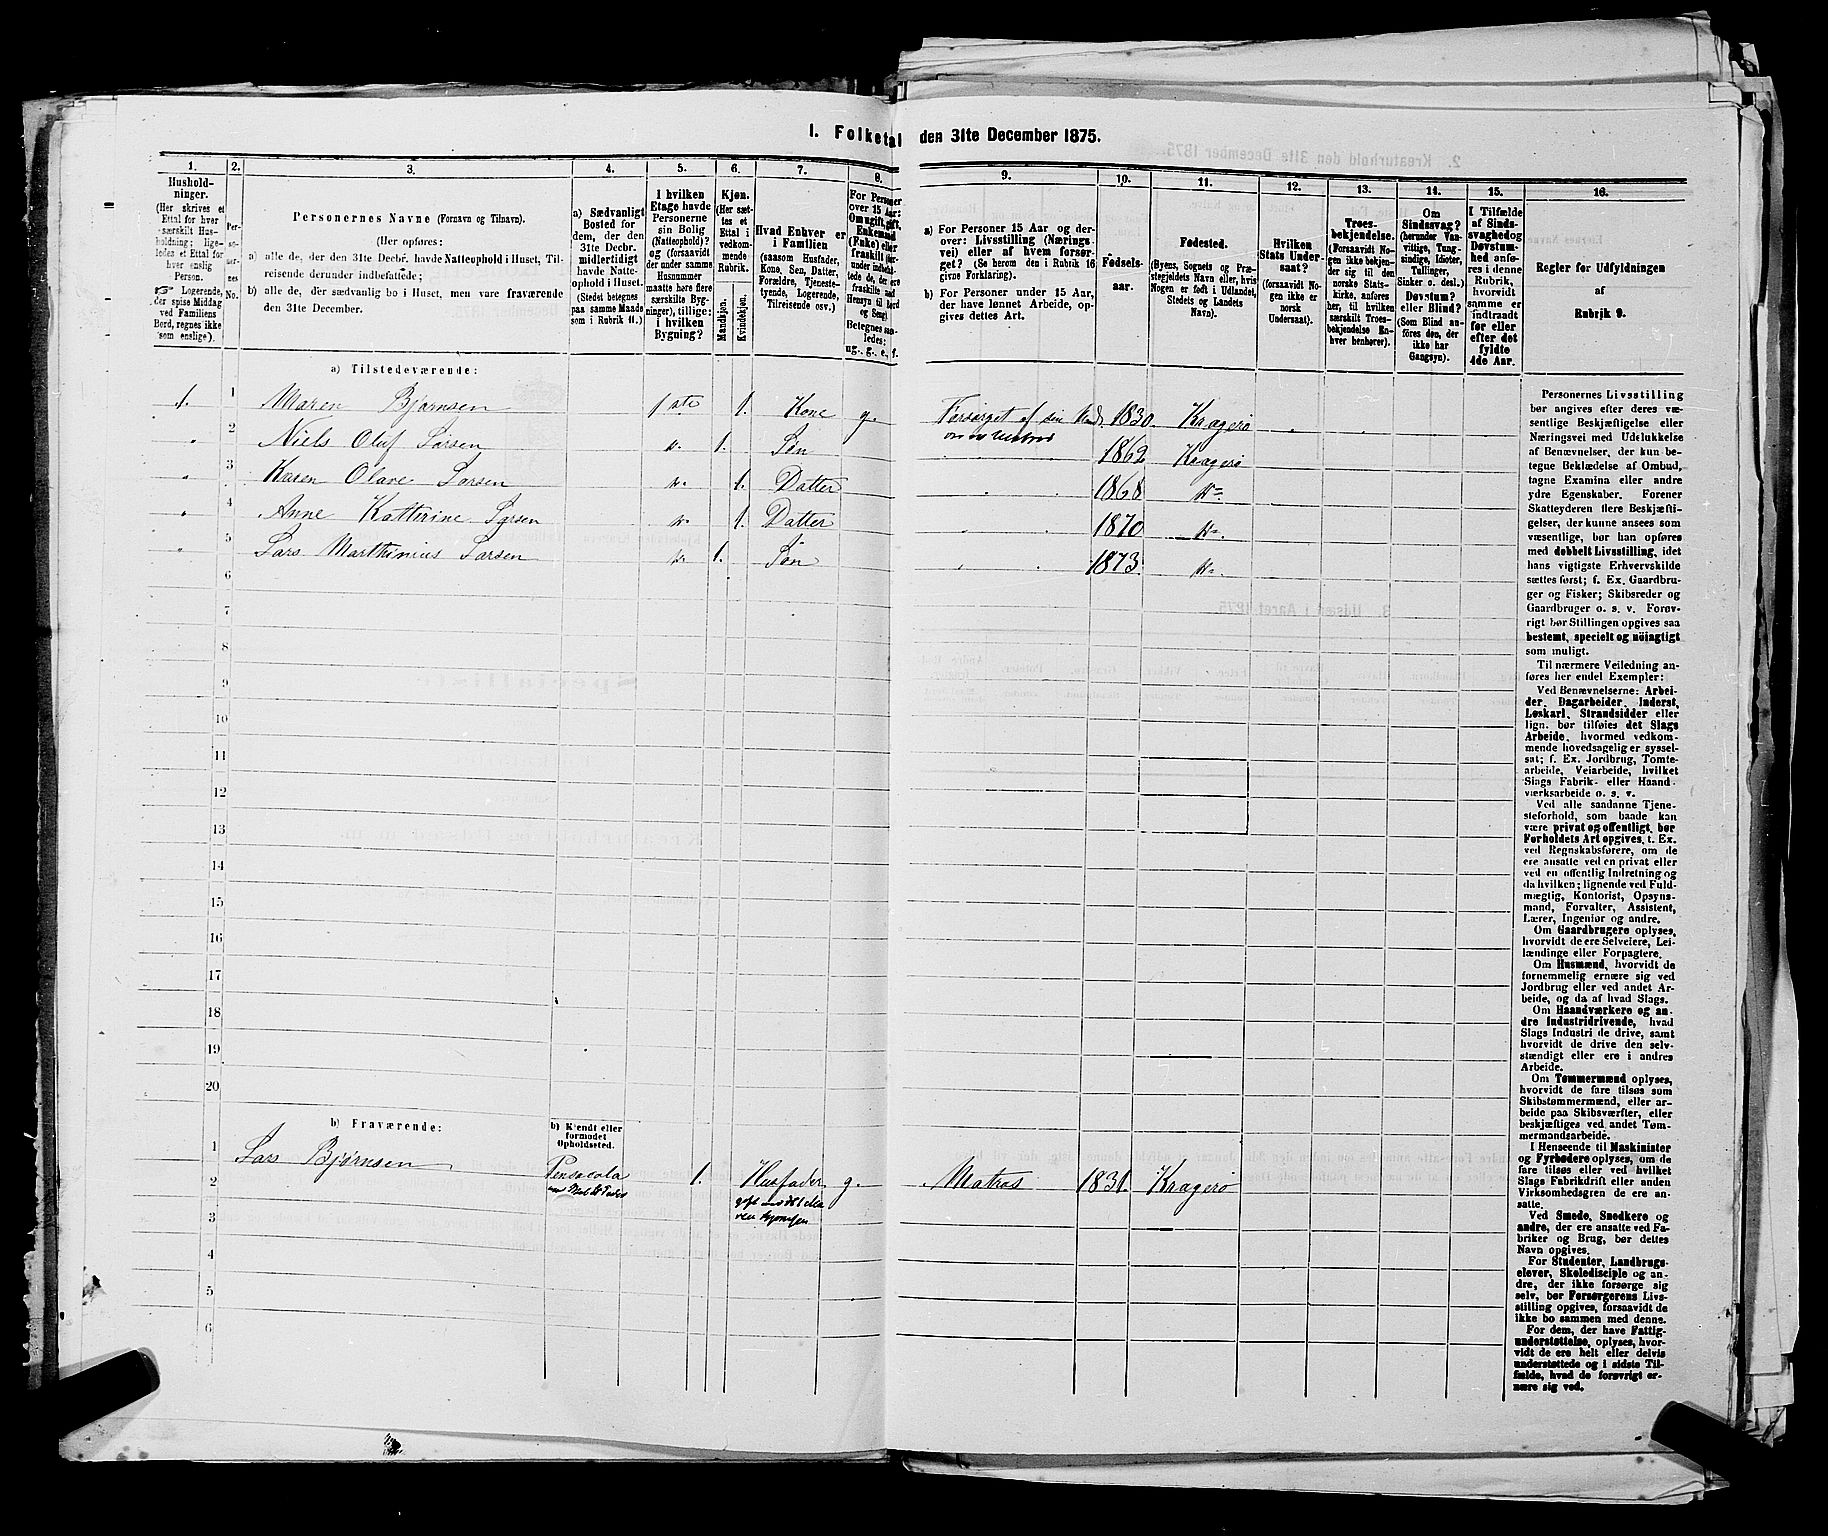 1. Folketal den 31te December 1875.
1.
Hushold-
ninger.
(Her skrives et
Ettal for hver
særskilt Hus-
holdning; lige-
ledes et Ettal for
hver enslig
Person.
☞ Logerende,
der spise Middag
ved Familiens
Bord, regnes ikke
som enslige).
2.
No.
3.
Personernes Navne (Fornavn og Tilnavn).
(Her opføres:
a) alle de, der den 31te Decbr. havde Natteophold i Huset, Til-
reisende derunder indbefattede;
b) alle de, der sædvanlig bo i Huset, men vare fraværende
den 31te December.
4.
a) Sædvanligt
Bosted for
dem, der den
31te Decbr.
midlertidigt
havde Natte-
ophold i Huset.
(Stedet betegnes
paa samme Maade
som i Rubrik 11.)
5.
I hvilken
Etage havde
Personerne
sin Bolig
(Natteophold)?
og (forsaavidt
der under samme
Husnummer
maatte høre flere
særskilte Byg-
ninger), tillige:
i hvilken
Bygning?
6.
Kjøn.
(Her sæt-
tes et
Ettal i
vedkom-
mende
Rubrik.
Mandkjøn.
Kvindekjøn.
7.
Hvad Enhver er
i Familien
(saasom Husfader,
Kone, Søn, Datter,
Forældre, Tjeneste-
tyende, Logerende,
Tilreisende osv.)
8.
For Personer
over 15 Aar:
Omugift, gift,
Enkemand
(Enke) eller
fraskilt
Betegnes saa-
ledes:
ug., g., e., f.
9.
a) For Personer 15 Aar og der-
over: Livsstilling (Nærings-
vei) eller af hvem forsør-
get? (Se herom den i Rubrik 16
givne Forklaring).
b) For Personer under 15 Aar,
der have lønnet Arbeide, op-
gives dettes Art.
10.
Fødsels-
aar.
11.
Fødested.
(Byens, Sognets og Præ-
stegjeldets Navn eller, hvis
Nogen er født i Udlandet,
Stedets og Landets
Navn).
12.
Hvilken
Stats Under-
saat?
(forsaavidt No-
gen ikke er
norsk
Undersaat).
13.
Troes-
bekjendelse.
(Forsaavidt No-
gen ikke bekjen-
der sig til den
norske Stats-
kirke, anføres
her, til hvilken
særskilt Troes-
bekjendelse En-
hver benhører).
14.
Om
Sindssvag?
(herunder Van-
vittige, Tung-
sindige, Idioter,
Tullinger,
Sinker o. desl.)
Døvstum?
eller Blind?
(Som Blind an-
føres den, der
ikke har
Gangsyn).
15.
I Tilfælde
af Sinds-
svaghed og
Døvstum-
hed anfø-
res i denne
Rubrik,
hvorvidt
samme er
indtraadt
før eller
efter det
fyldte
4de Aar.
16.
Regler for Udfyldningen
af
Rubrik 9.
a) Tilstedeværende:
1. 1 Maren Bjørnsen 1 ste 1. Kone g. Forsørget af sin 1830. Kragerø
" 2 Niels Oluf Larsen 1. Søn 1862 Kragerø
" 3 Karen Olave Larsen 1. Datter 1868
" 4 Anne Katterine Larsen 1. Datter 1870
" 5 Lars Marthinius Larsen 1. Søn 1873
6
7
8
9
10
11
12
13
14
15
16
17
18
19
20
b) Fraværende:
b) Kjendt eller
formodet
Opholdssted.
1 Lars Bjørnsen Pensacola 1. Husfader g. Matros 1831. Kragerø
2
3
4
5
6
Personernes Livsstilling
bør angives efter deres væ-
sentlige Beskjæftigelse eller
Næringsvei med Udelukkelse
af Benævnelser, der kun be-
tegne Beklædelse af Ombud,
tagne Examina eller andre
ydre Egenskaber. Forener
Skatteyderen flere Beskjæfti-
gelser, der kunne ansees som
væsentlige, bør han opføres
med dobbelt Livsstilling, idet
hans vigtigste Erhvervskilde
sættes først; f. Ex. Gaardbru-
ger og Fisker; Skibsreder og
Gaardbruger o. s. v. Forøv-
rigt bør Stillingen opgives saa
bestemt, specielt og nöiagtigt
som muligt.
Til nærmere Veiledning an-
føres her endel Exempler:
Ved Benævnelserne: Arbei-
der, Dagarbeider, Inderst,
Løskarl, Strandsidder eller
lign. bør tilføies det Slags
Arbeide, hvormed vedkom-
mende hovedsagelig er syssel-
sat; f. Ex. Jordbrug, Tomte-
arbeide, Veiarbeide, hvilket
Slags Fabrik- eller Haand-
værksarbeide o. s. v.
Ved alle saadanne Tjene-
steforhold, som baade kan
være privat og offentligt, bør
Forholdets Art opgives, t. Ex.
ved Regnskabsførere, om de
ere ansatte ved en privat eller
ved en offentlig Indretning og
da hvilken; lignende ved Fuld-
mægtig, Kontorist, Opsyns-
mand, Forvalter, Assistent,
Lærer, Ingeniør og andre.
Om Gaardbrugere oplyses,
hvorvidt de ere Selveiere, Lei-
lændinge eller Forpagtere.
Om Husmænd, hvorvidt de
fornemmelig ernære sig ved
Jordbrug eller ved andet Ar-
beide, og da af hvad Slags.
Om Haandværkere og an-
dre Industridrivende, hvad
Slags Industri de drive, samt
hvorvidt de drive den selv-
stændigt eller ere i andres
Arbeide.
Om Tømmermænd oplyses,
hvorvidt de fare tilsøs som
Skibstømmermænd, eller ar-
beide paa Skibsværfter, eller
beskjæftiges ved andet Tøm-
mermandsarbeide.
I Henseende til Maskinister
og Fyrbødere oplyses, om de
fare tilsøs eller ved hvilket
Slags Fabrikdrift eller anden
Virksomhedsgren de ere an-
satte.
Ved Smede, Snedkere og
andre, der ere ansatte ved Fa-
briker og Brug, bør dettes
Navn opgives.
For Studenter, Landbrugs-
elever, Skoledisciple og an-
dre, der ikke forsørge sig
selv, bør Forsørgerens Livs-
stilling opgives, forsaavidt de
ikke bo sammen med denne.
For dem, der have Fattig-
understøttelse, oplyses, hvor-
vidt de ere helt eller delvis
understøttede og i sidste Til-
fælde, hvad de forøvrigt er-
nære sig ved.